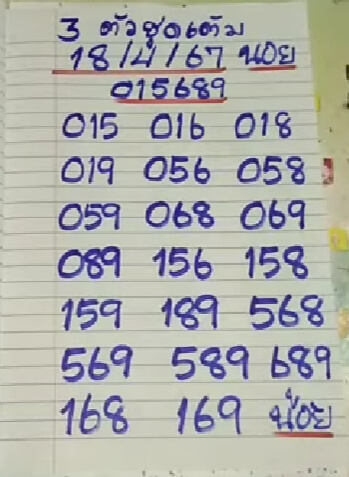 3 ตัวชุดเต็ม
18/4/67 น้อย
015689
015 016 018
019 056 058
059 068 069
089 156 158
159 189 568
569 589 689
168 169 น้อย